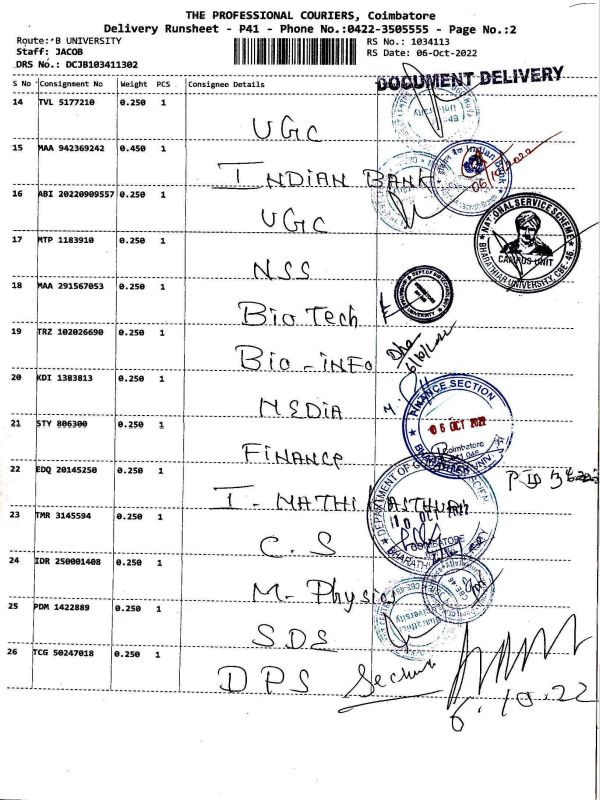 THE PROFESSIONAL COURIERS, Coimbatore
Delivery Runsheet - P41 - Phone No.:0422-3505555 - Page No.:2
Route:*B UNIVERSITY RS No.: 1034113
Staff: JACOB RS Date: 06-Oct-2022
DRS No.: DCJB103411302
DOCUMENT DELIVERY
S No Consignment No Weight PCS Consignee Details
14 TVL 5177210 0.250 1
UGC
15 MAA 942369242 0.450 1
INDIAN BANK
06/10/2022
16 ABI 20220909557 0.250 1
UGC
NATIONAL SERVICE SCHEME
CAMPUS UNIT
BHARATHIAR UNIVERSITY, CBE-46
17 MTP 1183910 0.250 1
NSS
18 MAA 291567053 0.250 1
Bio Tech
19 TRZ 102026690 0.250 1
Bio-INFO
20 KDI 1383813 0.250 1
MEDIA
FINANCE SECTION
06 OCT 2022
Coimbatore
21 STY 806300 0.250 1
FINANCE
22 EDQ 20145250 0.250 1
I. MATHI
23 TMR 3145594 0.250 1
C.S
COIMBATORE
24 IDR 250001408 0.250 1
M-Physics
25 PDM 1422889 0.250 1
SDE
26 TCG 50247018 0.250 1
DPS
6.10.22